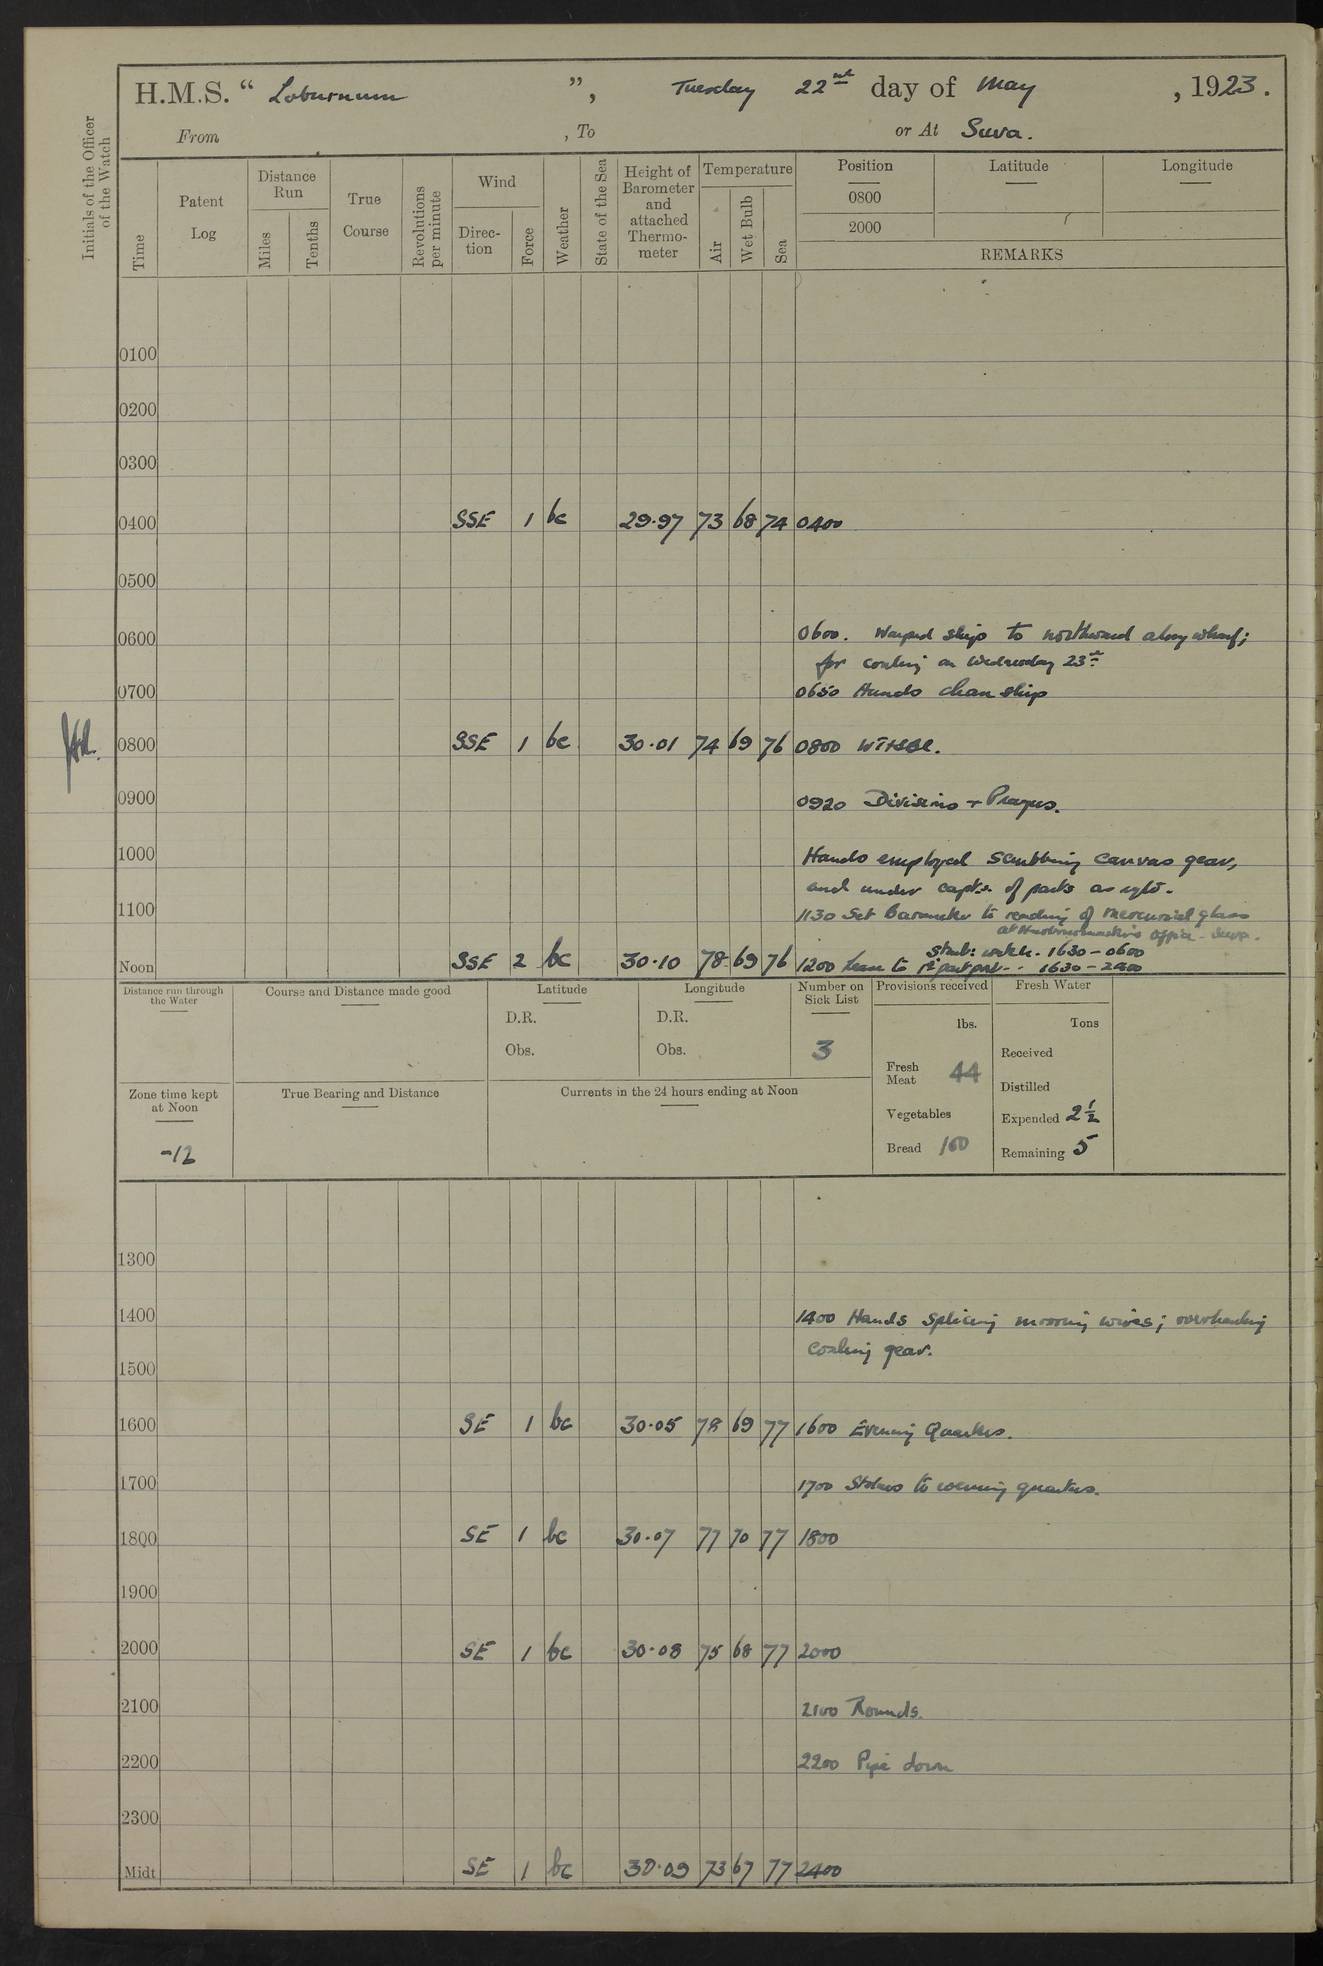 H.M.S. “ Laburnum ”, Tuesday 22nd day of May , 1923.
From , To or At Suva.
Initials of the Officer of the Watch
Time
Patent Log
Distance Run
Miles
Tenths
True Course
Revolutions per minute
Wind
Direction
Force
Weather
State of the Sea
Height of Barometer and attached Thermometer
Temperature
Air
Wet Bulb
Sea
Position
Latitude
Longitude
0800
2000
REMARKS
0100
0200
0300
0400 SSE 1 bc 29.97 73 68 74 0400
0500
0600 0600. Warped ship to northward along wharf;
for coaling on Wednesday 23rd
0700 0650 Hands clean ship
0800 SSE 1 bc 30.01 74 69 76 0800
0900 0920 Divisions + Prayers.
1000 Hands employed scrubbing canvas gear,
and under capts. of parts as
1100 1130 Set Barometer to reading of mercurial glass
at Harbourmaster's Office - Suva.
Starb: watch. 1630 – 0600
Noon SSE 2 bc 30.10 78 69 76 1200 Leave to 1st part port - - 1630 – 2400
Distance run through the Water
Course and Distance made good
Latitude
D.R.
Obs.
Longitude
D.R.
Obs.
Number on Sick List
3
Provisions received
lbs.
Fresh Meat 44
Vegetables
Bread 160
Fresh Water
Tons
Received
Distilled
Expended 2½
Remaining 5
Zone time kept at Noon
-12
True Bearing and Distance
Currents in the 24 hours ending at Noon
1300
1400 1400 Hands splicing mooring wires; overhauling
coaling gear.
1500
1600 SE 1 bc 30.05 78 69 77 1600 Evening Quarters.
1700 1700 Stokers to evening quarters.
1800 SE 1 bc 30.07 77 70 77 1800
1900
2000 SE 1 bc 30.08 75 68 77 2000
2100 2100 Rounds.
2200 2200 Pipe down
2300
Midt SE 1 bc 30.09 73 67 77 2400